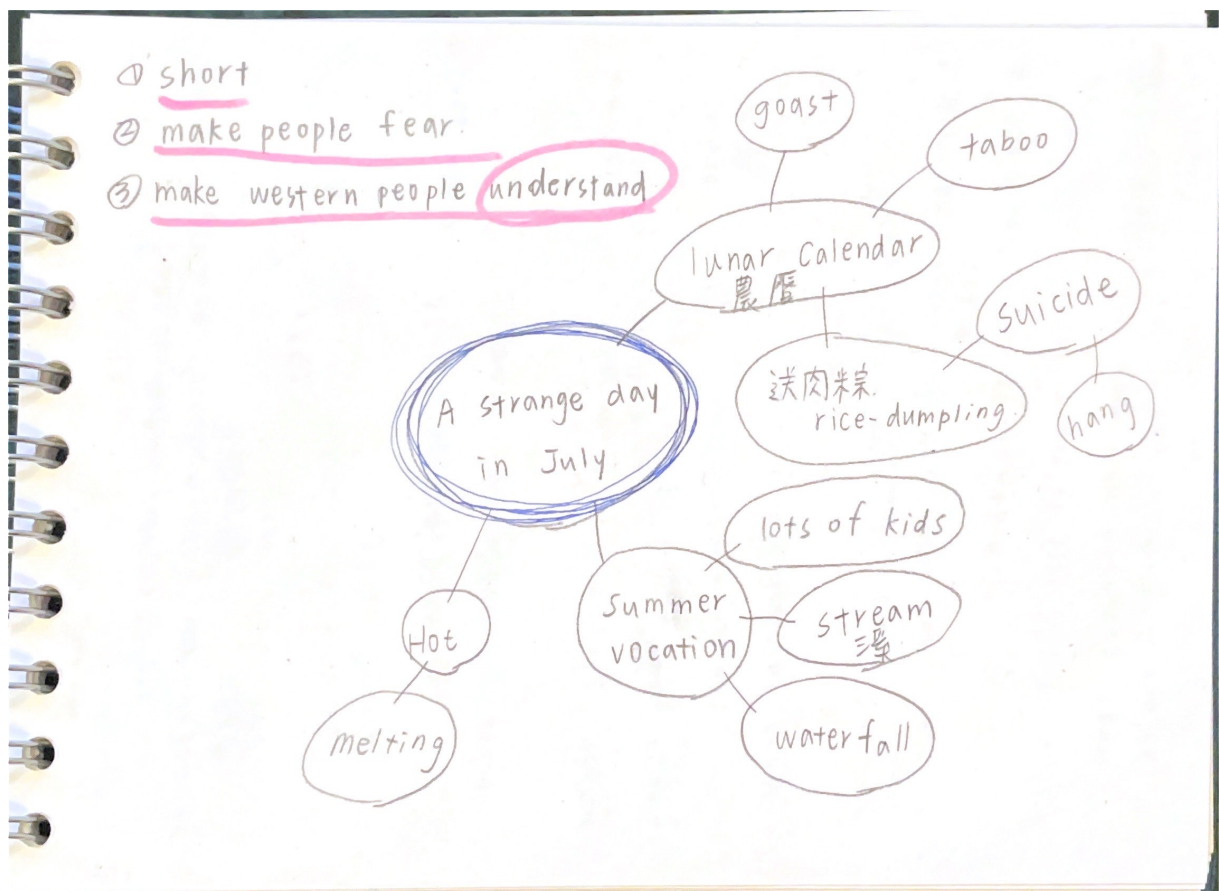 ① short
② make people fear.
③ make western people understand
goast
taboo
lunar Calendar
農曆
suicide
hang
送肉粽.
rice-dumpling.
A strange day
in July.
lots of kids
summer
vocation
stream
溪
waterfall
Hot
melting